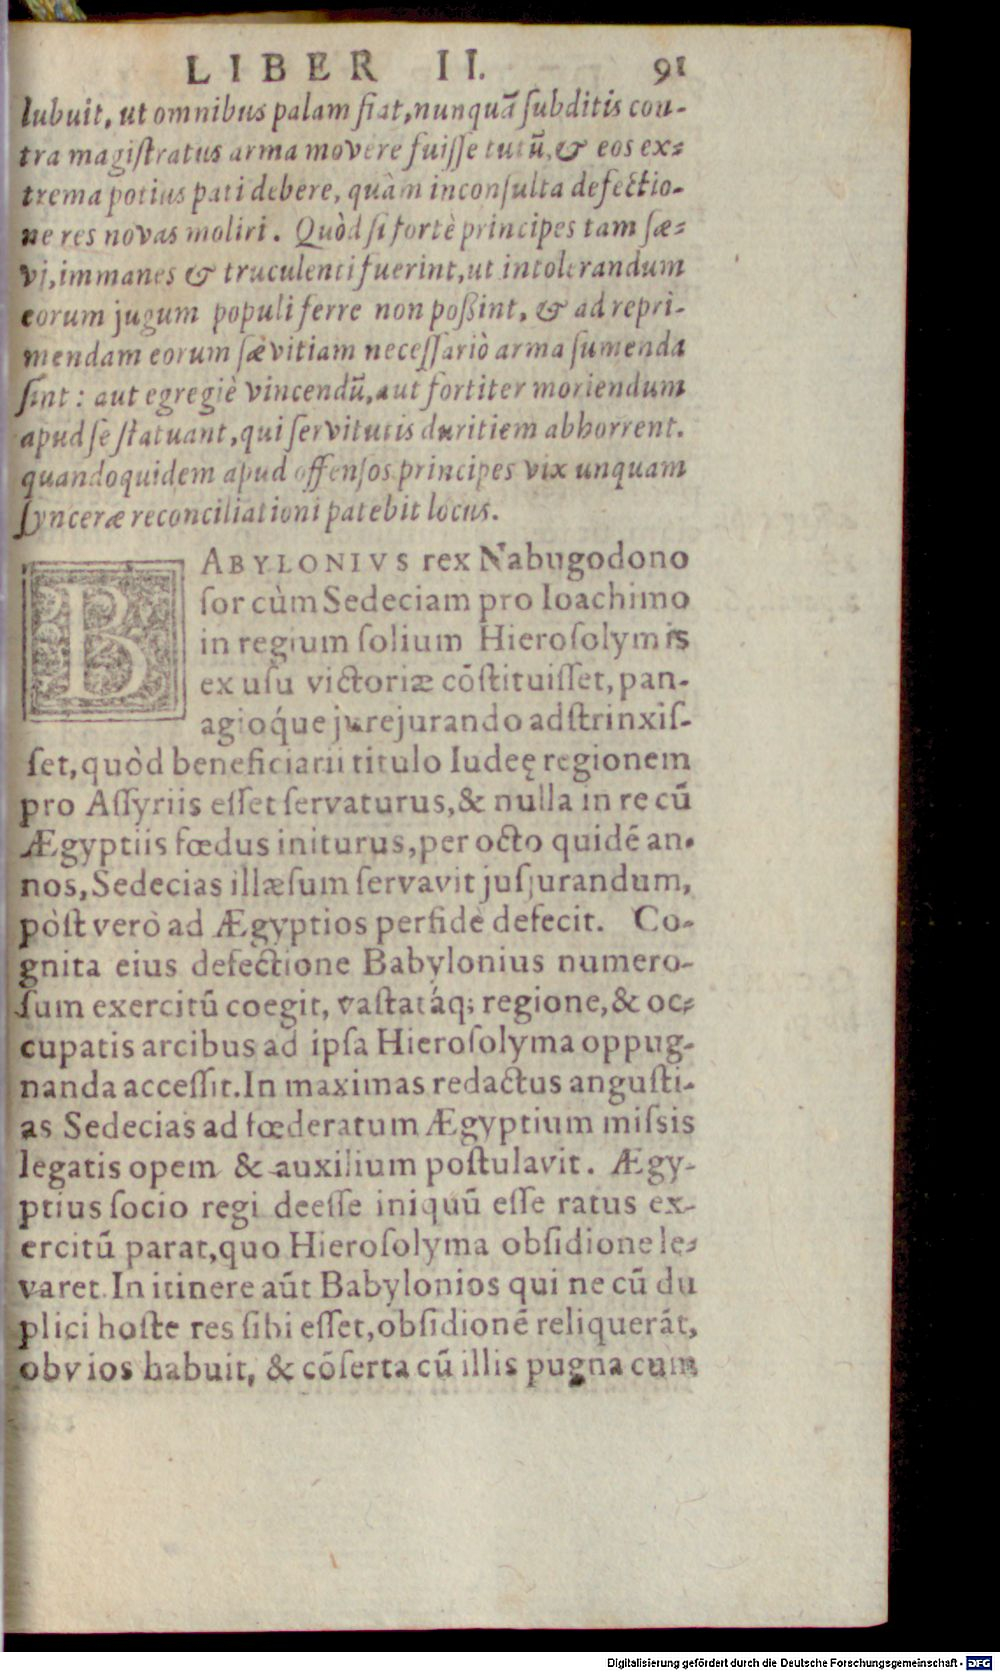 LIBER II. 91
lubuit, ut omnibus palam fiat, nunquā ſubditis con-
tra magiſtratus arma movere fuiſſe tutū, & eos ex-
trema potius pati debere, quàm inconſulta defectio-
ne res novas moliri. Quòd ſi fortè principes tam ſæ-
vi, immanes & truculenti fuerint, ut intolerandum
eorum jugum populi ferre non poßint, & ad repri-
mendam eorum ſævitiam neceſſariò arma ſumenda
ſint: aut egregiè vincendū, aut fortiter moriendum
apud ſe ſtatuant, qui ſervitutis duritiem abhorrent.
quandoquidem apud offenſos principes vix unquam
ſynceræ reconciliationi patebit locus.
BABYLONIVS rex Nabugodono
ſor cùm Sedeciam pro Ioachimo
in regium ſolium Hieroſolymis
ex uſu victoriæ cōſtituiſſet, pan-
agioq́ue jurejurando adſtrinxiſ-
ſet, quòd beneficiarii titulo Iudeę regionem
pro Aſſyriis eſſet ſervaturus, & nulla in re cū
Ægyptiis fœdus initurus, per octo quidē an-
nos, Sedecias illæſum ſervavit juſjurandum,
pòſt verò ad Ægyptios perfidè defecit. Co-
gnita eius defectione Babylonius numero-
ſum exercitū coegit, vaſtatáq; regione, & oc-
cupatis arcibus ad ipſa Hieroſolyma oppug-
nanda acceſſit. In maximas redactus anguſti-
as Sedecias ad fœderatum Ægyptium miſsis
legatis opem & auxilium poſtulavit. Ægy-
ptius ſocio regi deeſſe iniquū eſſe ratus ex-
ercitū parat, quo Hieroſolyma obſidione le-
varet. In itinere aūt Babylonios qui ne cū du
plici hoſte res ſibi eſſet, obſidionē reliquerāt,
obvios habuit, & cōſerta cū illis pugna cum
Digitalisierung gefördert durch die Deutsche Forschungsgemeinschaft - DFG